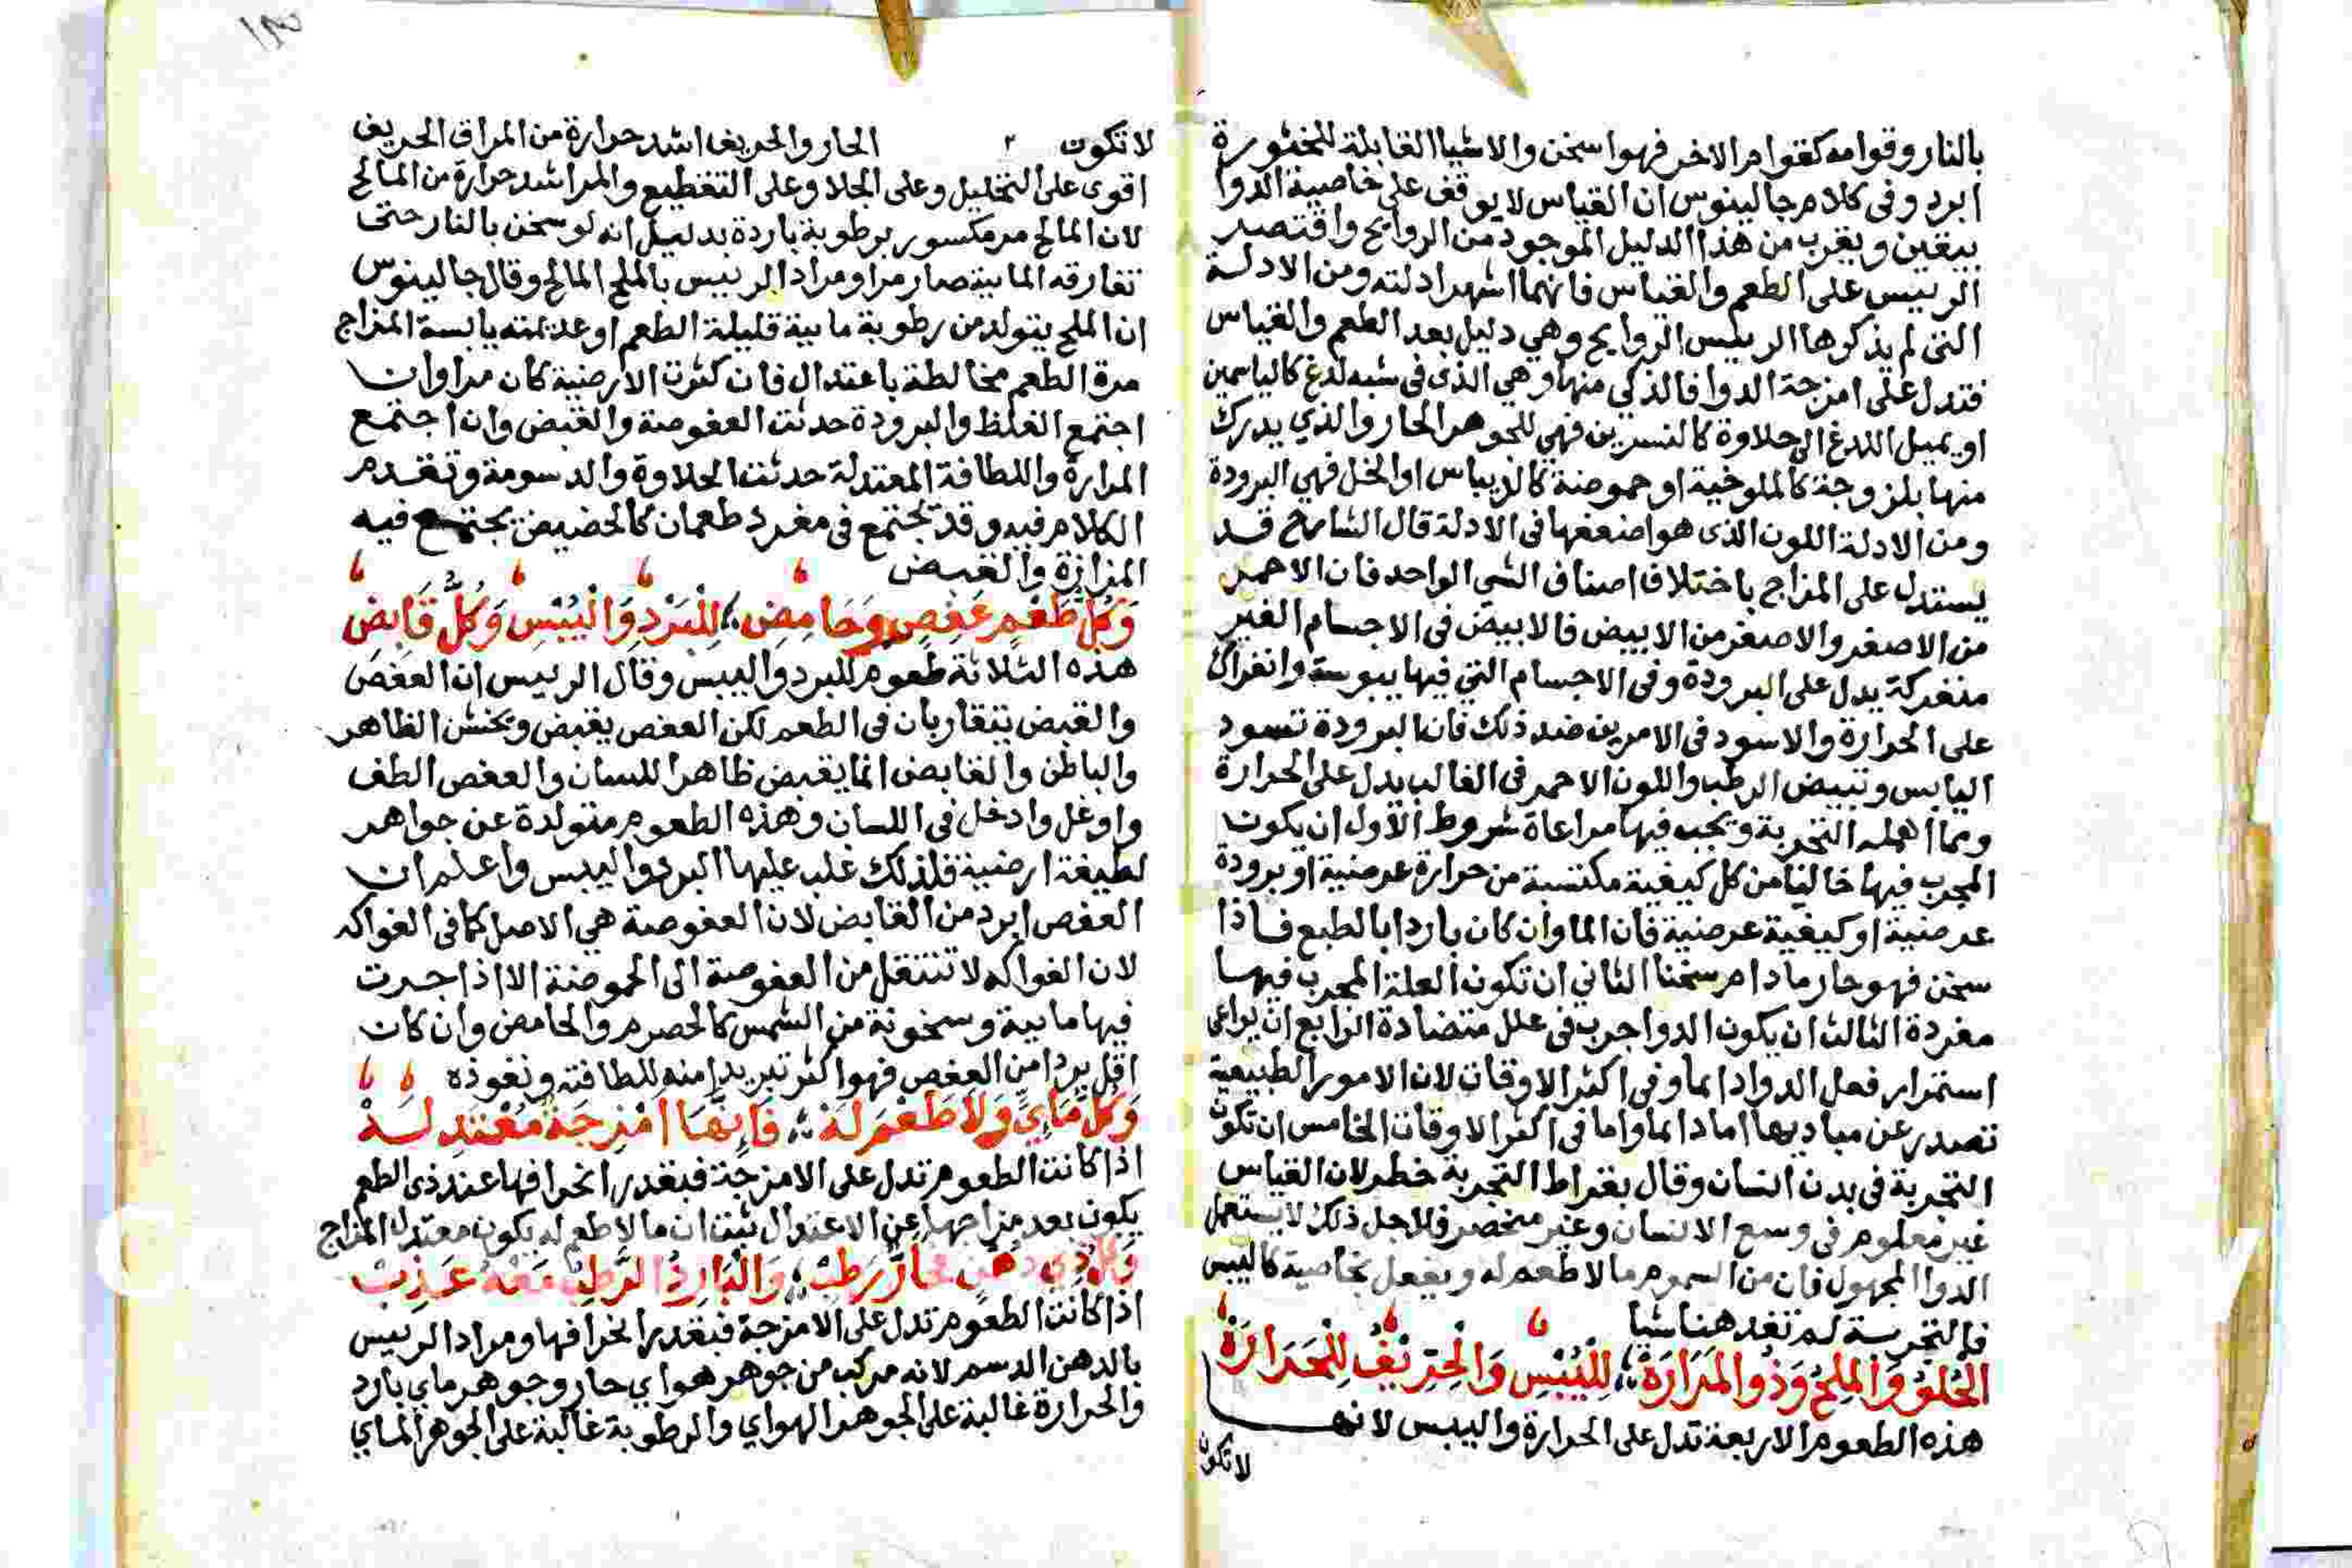 بالنار وقوامه كقوام الاخر فهو اسخن والاشيا القابلة للخثورة
ابرد وفى كلام جالينوس ان القياس لا يوقف على خاصية الدوا
بيقين ويقرب من هذا الدليل الموجود من الروايح واقتصر
الرييس على الطعم والقياس فانهما اشهر ادلته ومن الادلة
التى لم يذكرها الرييس الروايح وهي دليل بعد الطعم والقياس
فتدل على امزجة الدوا فالذكي منها وهي الذى فى شبه لدغ كالياسمين
او يميل اللدغ الى حلاوة كالنسرين فهى للجوهر الحار والذي يدرك
منها بلزوجة كالملوخية او حموضة كالريباس او الخل فهي البرودة
ومن الادلة اللون الذى هو اضعفها فى الادلة قال الشارح قد
يستدل على المزاج باختلاف اصناف الشي الواحد فان الاحمر
من الاصفر والاصفر من الابيض فالابيض فى الاجسام الغير
منفركة يدل على البرودة وفى الاجسام التي فيها يبوسة وانفراك
على الحرارة والاسود فى الامرين ضد ذلك فان البرودة تسود
اليابس وتبيض الرطب واللون الاحمر فى الغالب يدل على الحرارة
ومما اهمله التجربة ويجب فيها مراعاة شروط الاول ان يكون
المجرب فيها خاليا من كل كيفية مكتسبة من حرارة عرضية او برودة
عرضية او كيفية عرضية فان الما وان كان باردا بالطبع فاذا
سخن فهو حار مادام سخنا الثاني ان تكون العلة المجرب فيها
مفردة الثالث ان يكون الدوا جرب فى علل متضادة الرابع ان يراعى
استمرار فعل الدوا دايما وفى اكثر الاوقات لان الامور الطبيعية
تصدر عن مباديها اما دايما واما فى اكثر الاوقات الخامس ان تكون
التجربة فى بدن انسان وقال بقراط التجربة خطر لان القياس
غير معلوم فى وسع الانسان وغير منحصر فلاجل ذلك لا يستعمل
الدوا المجهول فان من السموم ما لا طعم له ويفعل بخاصية كالبيش
فالتجربة لم تفد هنا شيا
الحُلوُ وَالمِلحُ وَذُو المَرَارَة لِلْيُبْسِ وَالحِرِّيْفُ لِلْحَرَارَة
هذه الطعوم الاربعة تدل على الحرارة واليبس لانها
لا تكون
لا تكون الحار والحريف اشد حرارة من المر اذ الحريف
اقوى على التحليل وعلى الجلا وعلى التقطيع والمر اشد حرارة من المالح
لان المالح مر مكسور برطوبة باردة بدليل انه لو سخن بالنار حتى
تفارقه المايية صار مرا ومراد الرييس بالملح المالح وقال جالينوس
ان الملح يتولد من رطوبة مايية قليلة الطعم او عديمته يابسة المزاج
مرة الطعم مخالطة باعتدال فان كثرت الارضية كان مرا وان
اجتمع الغلظ والبرودة حدثت العفوصة والقبض وان اجتمع
المرارة واللطافة المعتدلة حدثت الحلاوة والدسومة وتقدم
الكلام فيه وقد تجتمع فى مفرد طعمان كالحضيض يجتمع فيه
المزازة والقبض
وَكُلُّ طَعْمٍ عَفِصٍ وَحَامِضِ لِلْبَرْدِ وَالْيُبْسِ وَكُلُّ قَابِضِ
هذه الثلاثة طعوم للبرد واليبس وقال الرييس ان العفص
والقبض يتقاربان فى الطعم لكن العفص يقبض ويخشن الظاهر
والباطن والقابض انما يقبض ظاهرا للسان والعفص الطف
واوغل وادخل فى اللسان وهذه الطعوم متولدة عن جواهر
لطيفة ارضية فلذلك غلب عليها البرد واليبس واعلم ان
العفص ابرد من القابض لان العفوصة هي الاصل كما فى الفواكه
لان الفواكه لا تنتقل من العفوصة الى الحموضة الا اذا جرت
فيها مايية وسخونة من الشمس كالحصرم والحامض وان كان
اقل بردا من العفص فهو اكثر تبريدا منه للطافته ونفوذه
وَكُلُّ مَايٍ وَلاَ طَعْمَ لَهْ فَإِنَّهَا امْزِجَةٌ مُعْتَدِلَهْ
اذا كانت الطعوم تدل على الامزجة فبقدر انحرافها عند ذى الطعم
يكون بعد مزاجها عن الاعتدال ثبت ان ما لا طعم له يكون معتدل المزاج
وَكُلُّ ذِي دُهْنٍ حَارٌّ رَطْبُ وَالْبَارِدُ الرَّطْبُ مَعْهُ عَذْبُ
اذا كانت الطعوم تدل على الامزجة فبقدر انحرافها ومراد الرييس
بالدهن الدسم لانه مركب من جوهر هواي حار وجوهر ماي بارد
والحرارة غالبة على الجوهر الهواي والرطوبة غالبة على الجوهر الماي